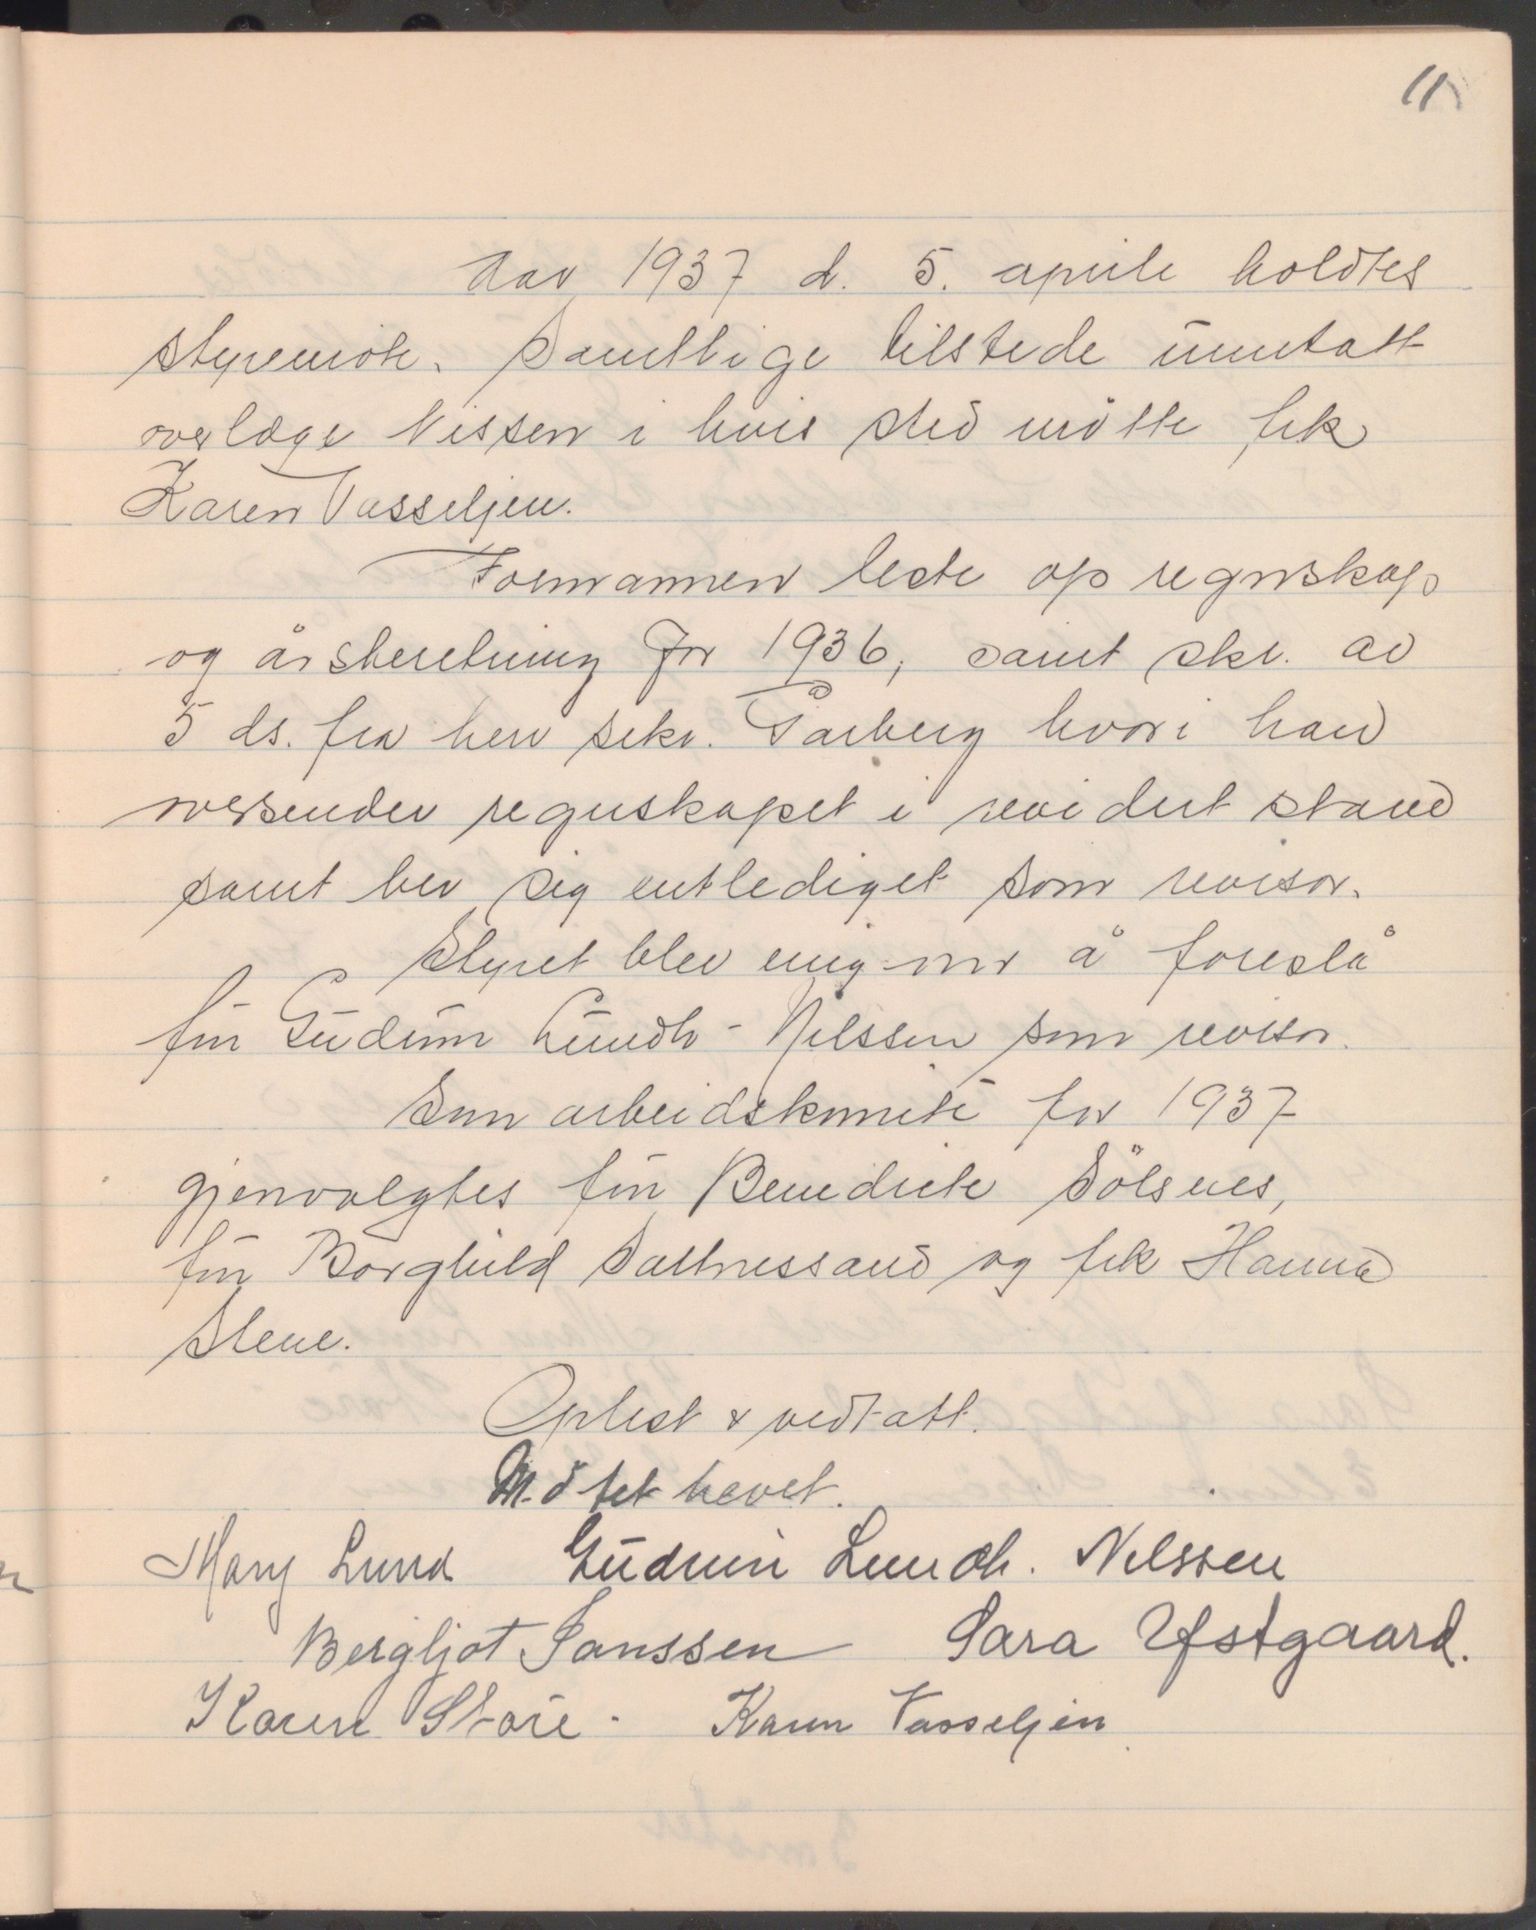 11
Aar 1937 d. 5. april holdtes
styremöte. Samtlige tilstede unntatt
overlæge Nissen i hvis sted mötte frk
Karen Vasseljen.
Formannen leste op regnskap
og årsberetning for 1936, samt skr. av
5 ds. fra herr sekr. Påsberg hvori han
oversender regnskapet i revidert stand
samt ber sig entlediget som revisor.
Styret blev enig om å foreslå
fru Gudrun Lundh-Nilssen som revisor.
Som arbeidskomité for 1937
gjenvalgtes fru Benedicte Sölsnes,
fru Borghild Saltnessand og frk Hanna
Stene.
Oplest & vedtatt.
Mötet hevet.
Mary Lund Gudrun Lundh. Nilssen
Bergljot Janssen Sara Ystgaard.
Karen Støre. Karen Vasseljen